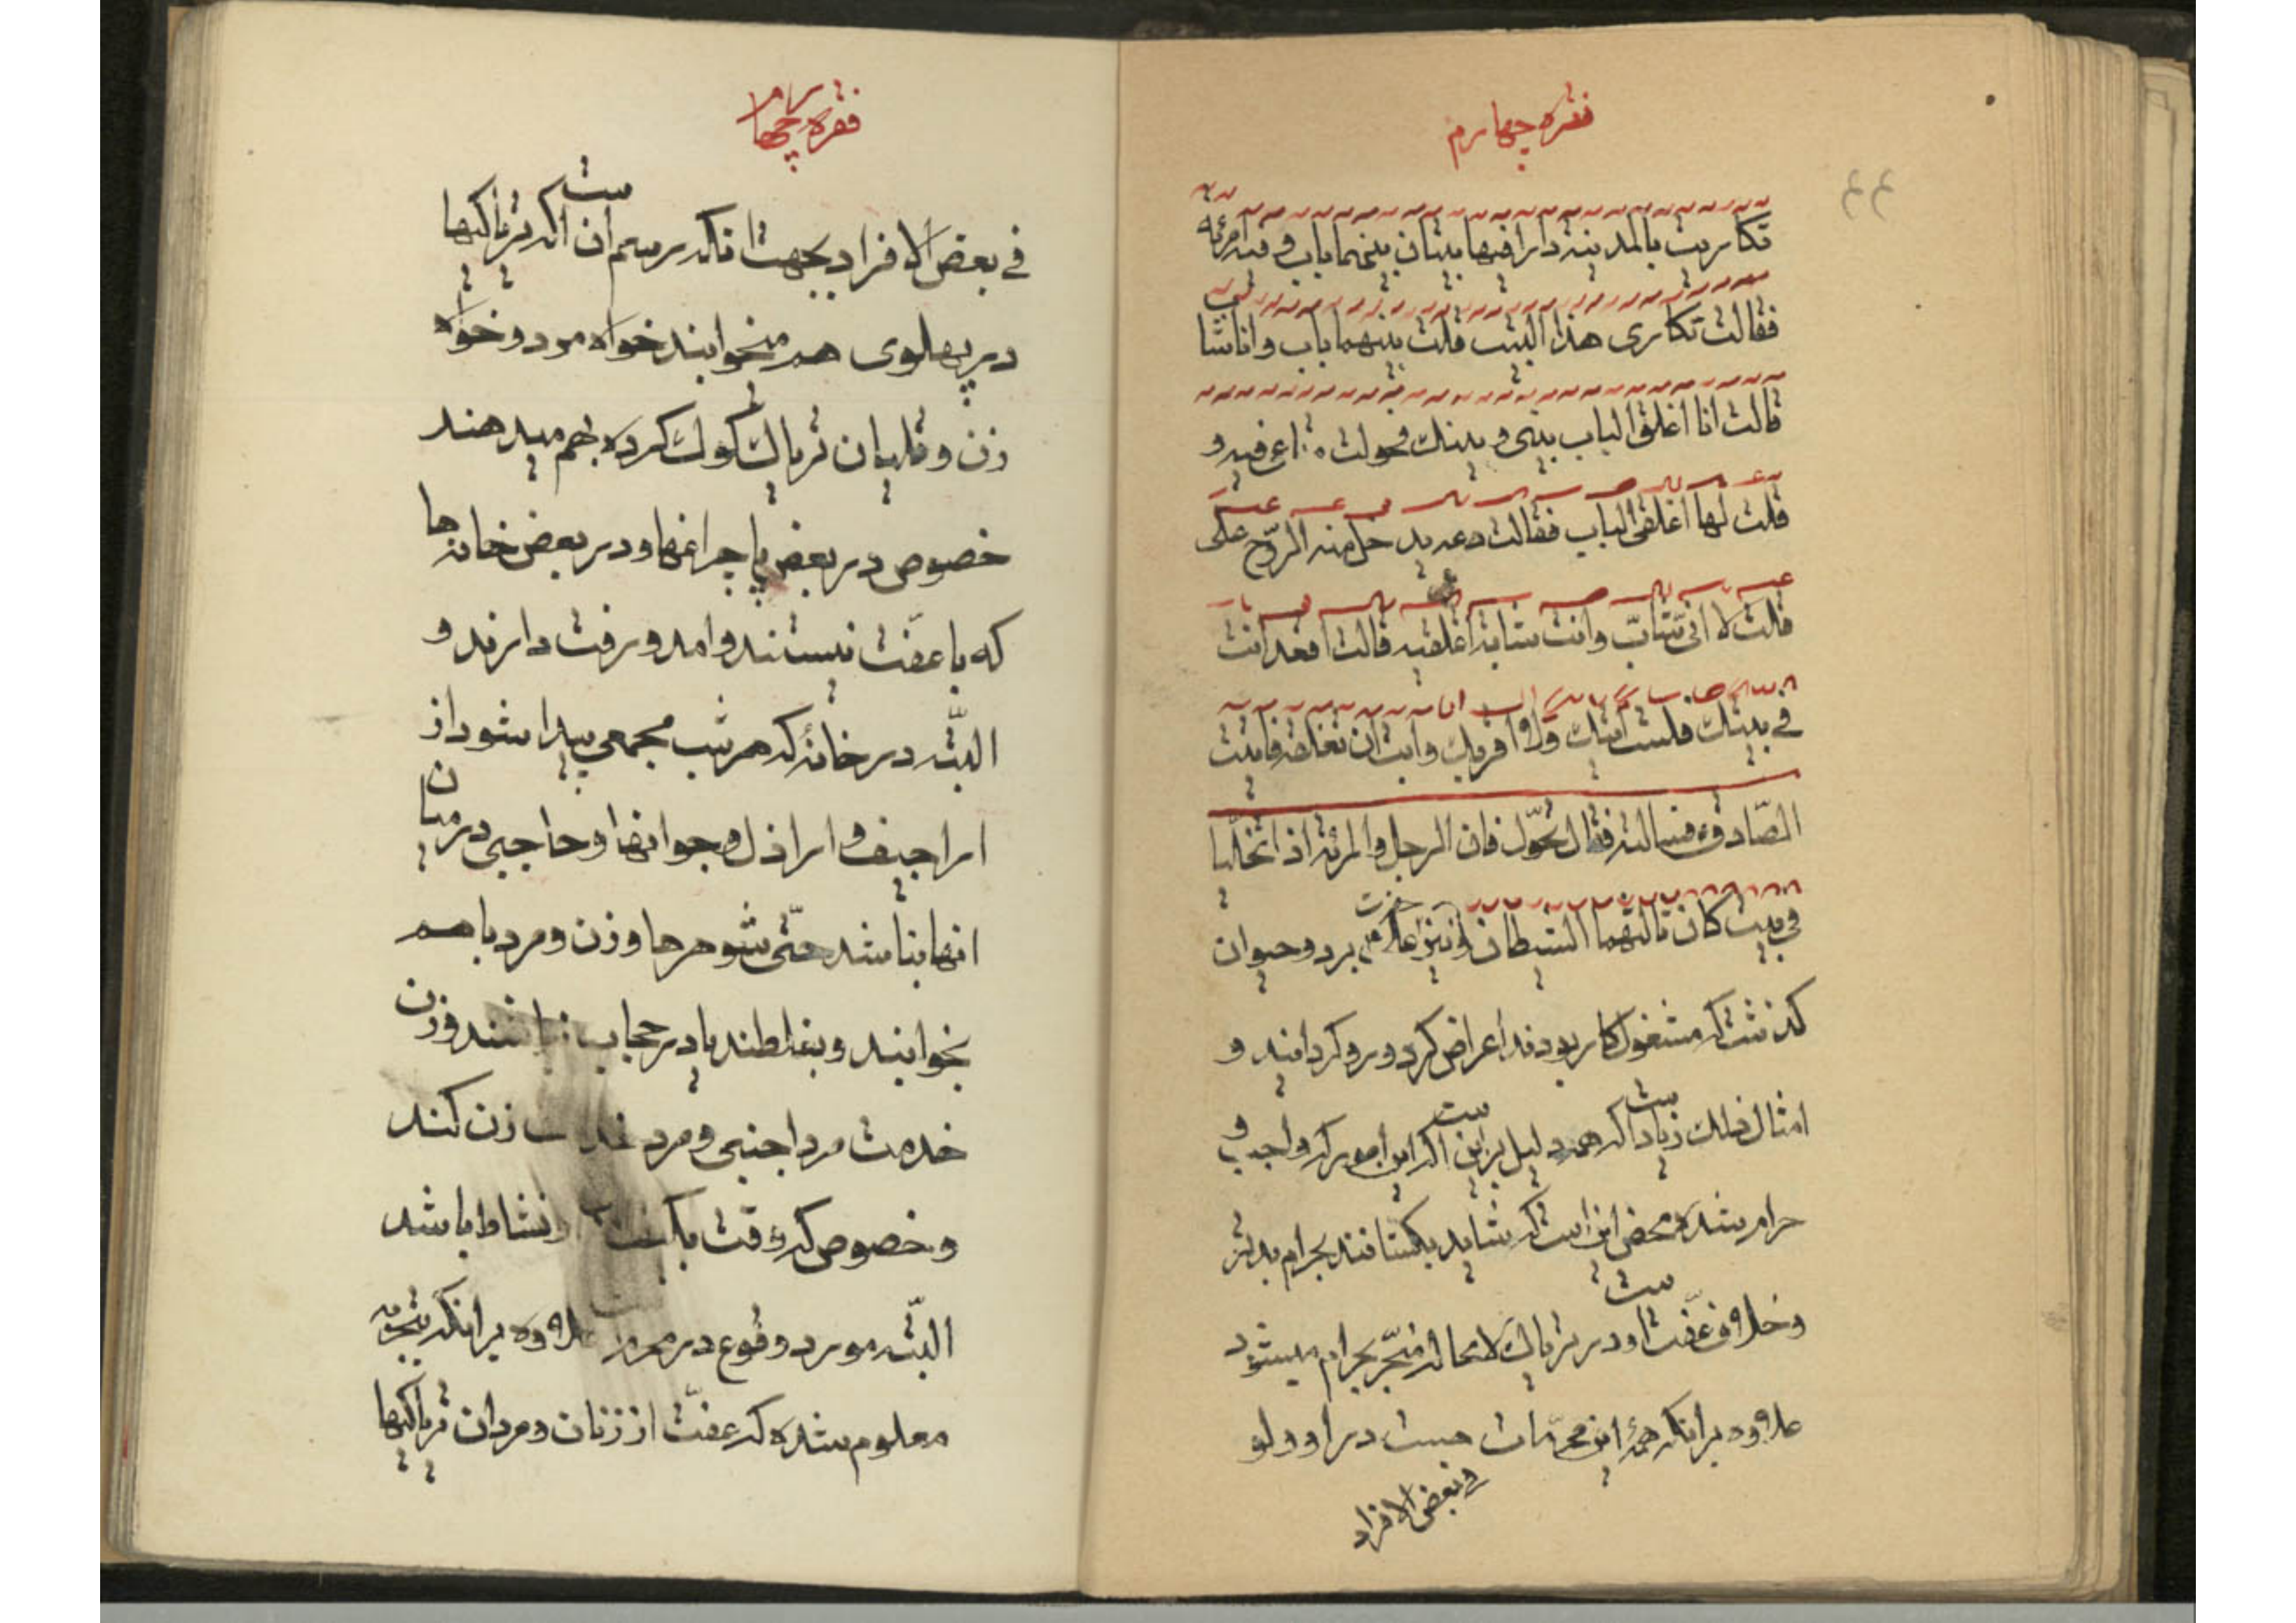 فقره چهارم
۴۴
تکاریت بالمدینة دارا فیها بیتان بینهما باب و فیه امرئة
فقالت تکاری هذا البیت قلت بینهما باب و انا شاب
قالت انا اغلق الباب بینی و بینک فحولت متاعی فیه و
قلت لها اغلقی الباب فقالت دعه یدخل منه الروح علی
قلت لا انی شاب و انت شابة اغلقیه قالت اقعد انت
فی بیتک فلست آتیک و لا اقربک و ابت ان تغلقه فاتیت
الصّادق ع فسالته فقال تحوّل فان الرجل و المرئة اذا تخلّیا
فی بیت کان ثالثهما الشیطان و نیز حضرت بر دو حیوان
گذشت که مشغول کار بودند اعراض کرد و رو گردانید و
امثال ذلک زیاد است که همه دلیل بر این است که این امور که واجب و
حرام شده محض این است که شاید یکشانند بحرام بدتر
و خلاف عفّت است و در تریاک لا محاله منجّر بحرام میشود
علاوه بر انکه همۀ این محرّمات هست در او و لو
فی بعض الافراد
فقره چهارم
فی بعض الافراد بجهت انکه رسم ان است که تریاکیها
در پهلوی هم میخوابند خواه مرد و خواه
زن و قلیان تریاک کوک کرده بهم میدهند
خصوص در بعض پاچراغها و در بعض خانه‌ها
که با عفّت نیستند و امد و رفت دارند و
البتّه در خانۀ که هر شب مجمعی پیدا شود از
اراجیف و اراذل و جوانها و حاجبی در میان
انها نباشد حتّی شوهرها و زن و مرد با هم
بخوابند و بغلطند یا در حجاب نباشند و زن
خدمت مرد اجنبی و مرد خدمت زن کند
و خصوص که وقت و نشاط باشد
البتّه مورد وقوع در محرم علاوه بر انکه بتجربه
معلوم شده که عفّت از زنان و مردان تریاکیها